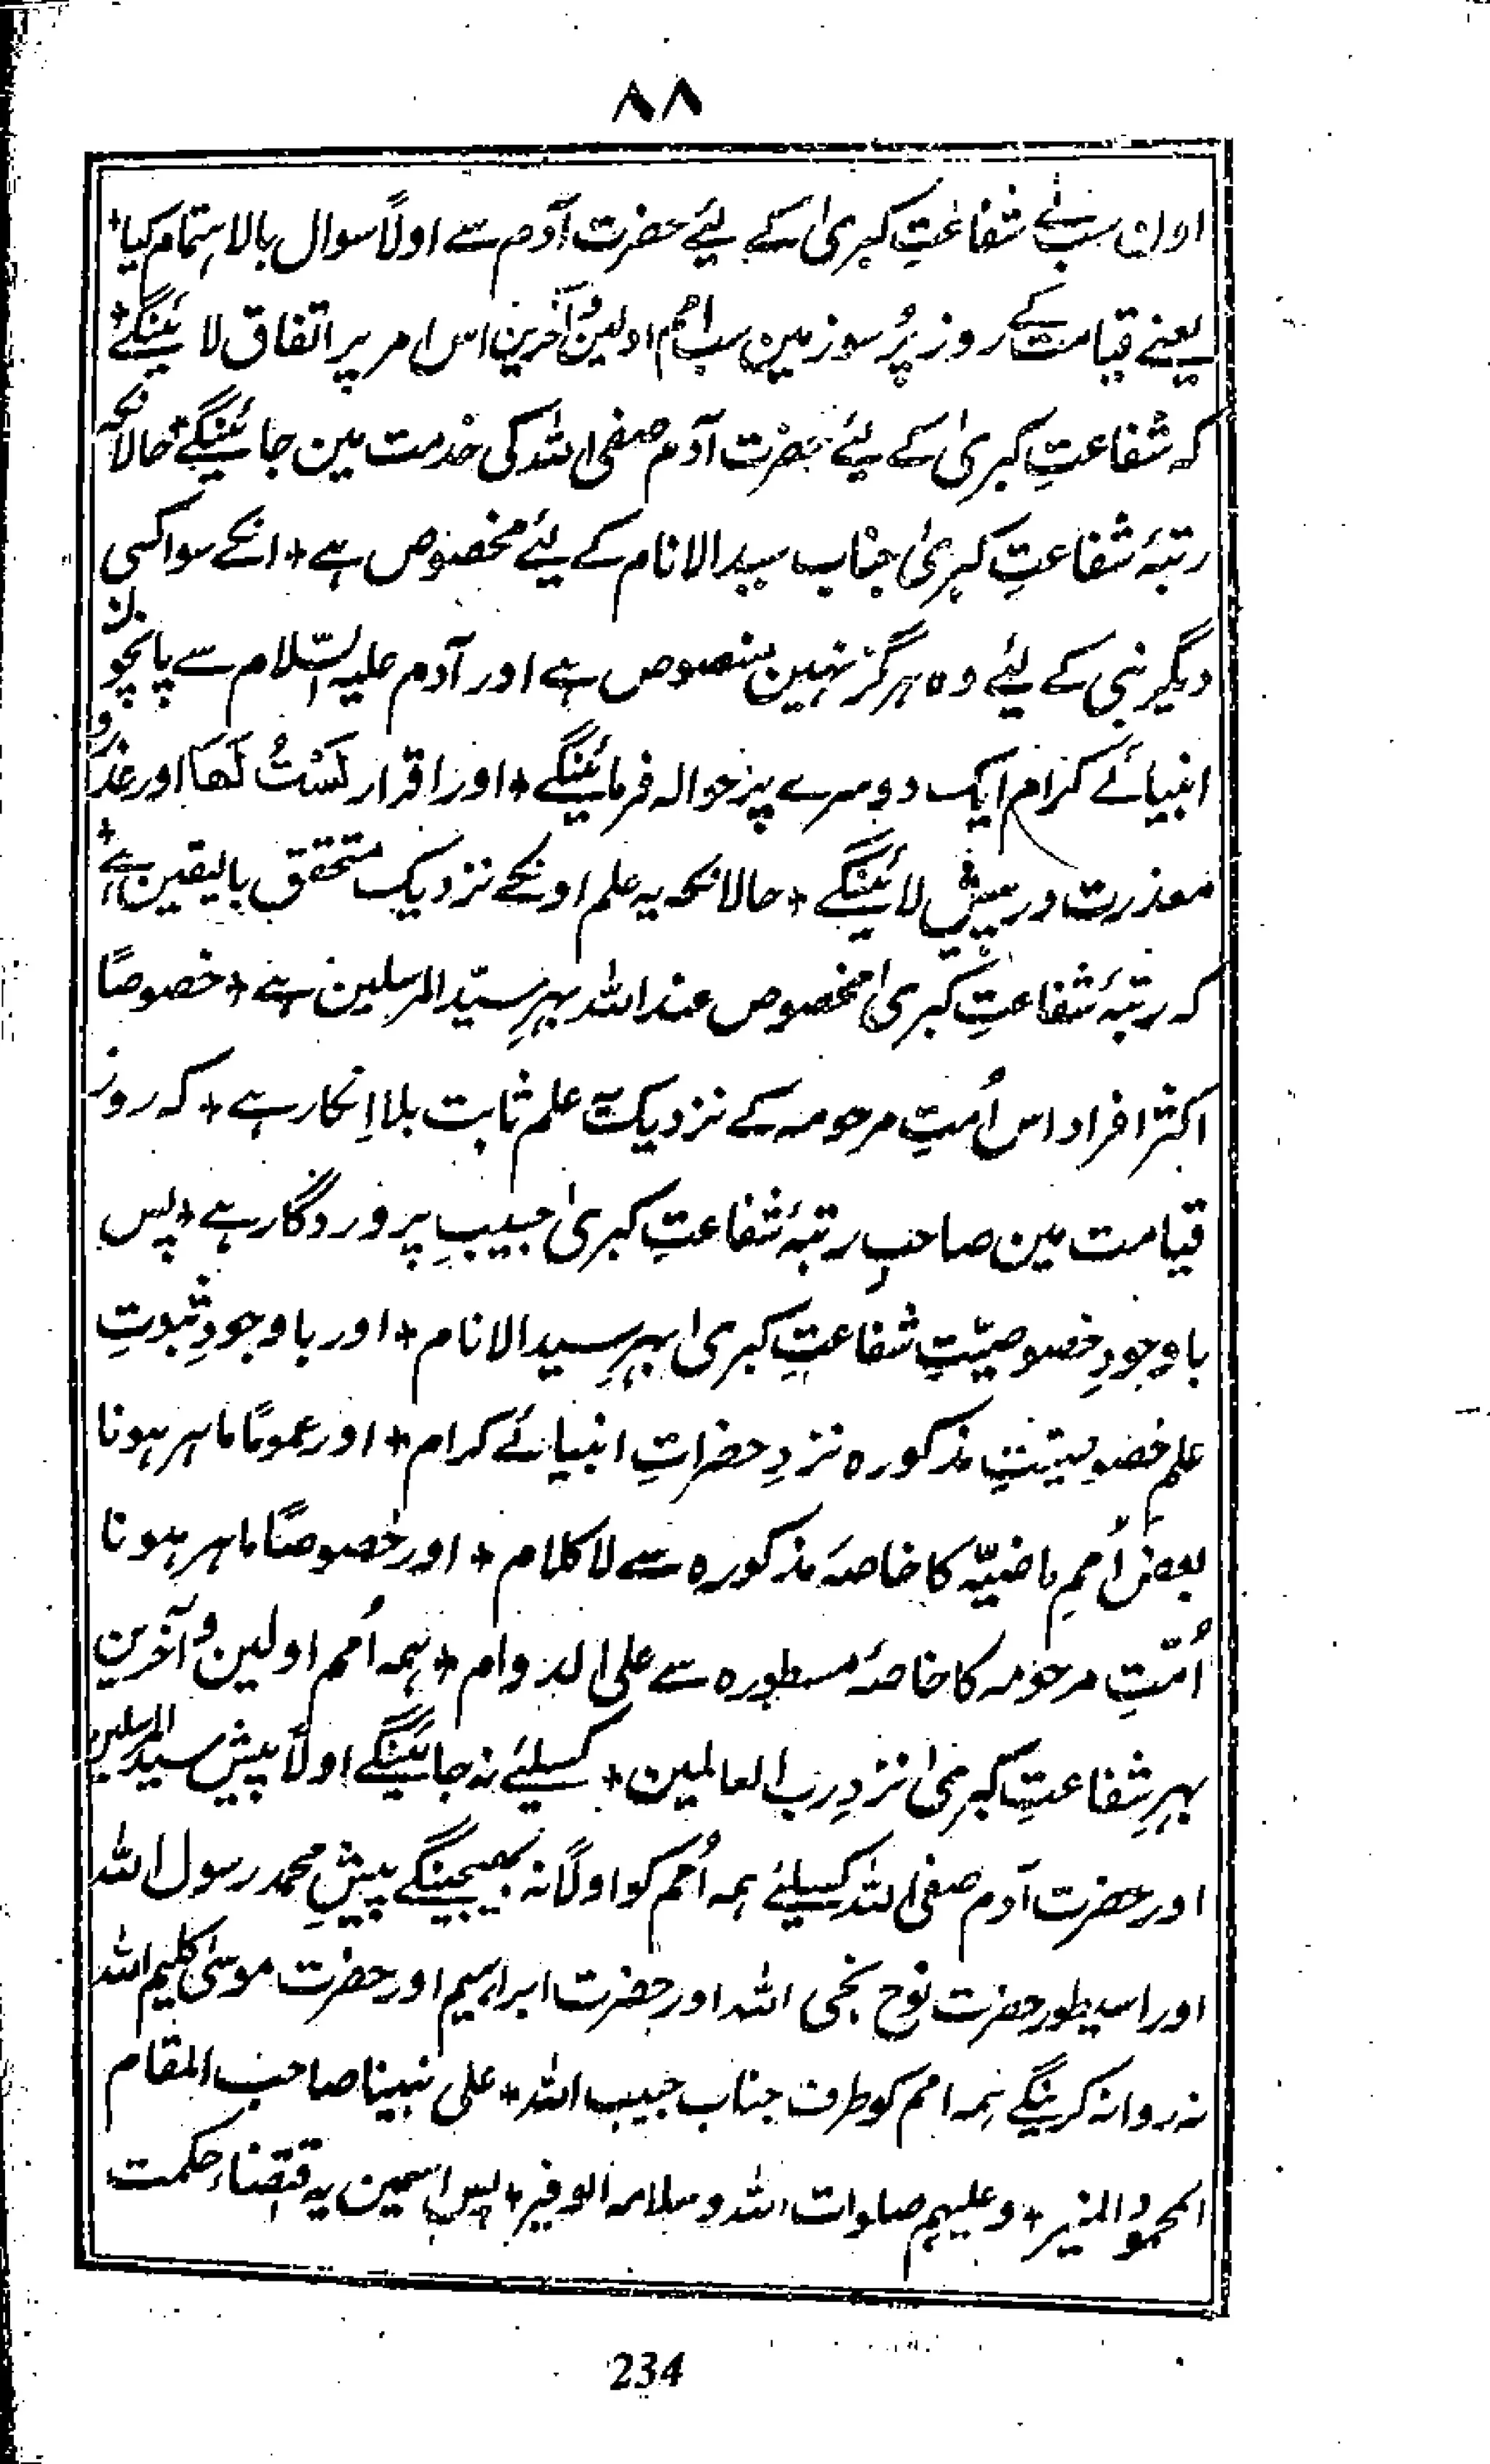 ۸۸
اون سب نے شفاعتِ کبریٰ کے لیٔے حضرت آدم سے اولاً سوال بالاہتمام کیا+
یعنے قیامت کے روز پُر سوز مین سب اُمم اولین و آخرین اس امر پر اتفاق لائینگے+
کہ شفاعتِ کبریٰ کے لیٔے حضرت آدم صفی اللہ کی خدمت مین جائینگے+ حالانکہ
رتبۂ شفاعتِ کبریٰ جناب سید الانام کے لیٔے مخصوص ہے + انکے سوا کسی
دیگر نبی کے لیٔے وہ ہرگز نہین منصوص ہے اور آدم علیہ السّلام سے پانچون
انبیائے کرام ایک دوسرے پر حوالہ فرمائینگے + اور اقرار لَسْتُ لَھَا اور عذر و
معذرت درپیش لائینگے + حالانکہ یہ علم اونکے نزدیک متحقق بالیقین ہے+
کہ رتبۂ شفاعتِ کبریٰ مخصوص عند اللہ بہرِ سیّد المرسلین ہے + خصوصاً
اکثر افراد اس اُمتِ مرحومہ کے نزدیک یہ علم ثابت بلا انکار ہے + کہ روز
قیامت مین صاحبِ رتبۂ شفاعتِ کبریٰ حبیبِ پروردگار ہے + پس
باوجودِ خصوصیّتِ شفاعتِ کبریٰ بہرِ سید الانام + اور باوجودِ ثبوتِ
علم خصوصیتِ مذکورہ نزدِ حضراتِ انبیائے کرام + اور عموماً ماہر ہونا
بعض اُممِ ماضیّہ کا خاصۂ مذکورہ سے لا کلام + اور خصوصاً ماہر ہونا
اُمّتِ مرحومہ کا خاصۂ مسطورہ سے علی الدوام + ہمہ اُمم اولین و آخرین
بہرِ شفاعتِ کبریٰ نزدِ رب العالمین + کسیلئے نہ جائینگے اولاً پیش سید المرسلین
اور حضرت آدم صفی اللہ کسیلئے ہمہ اُمم کو اولاً نہ بھیجینگے پیشِ محمد رسول اللہ
اور اسیطور حضرت نوح نجی اللہ اور حضرت ابراہیم اور حضرت موسیٰ کلیم اللہ
نہ روانہ کرینگے ہمہ امم کو طرف جناب حبیب اللہ + علی نبینا صاحب المقام
المحمود المنیر + وعلیہم صلوات اللہ وسلامہ الوفیر + پس اسمین یہ اقتضاء حکمت
234